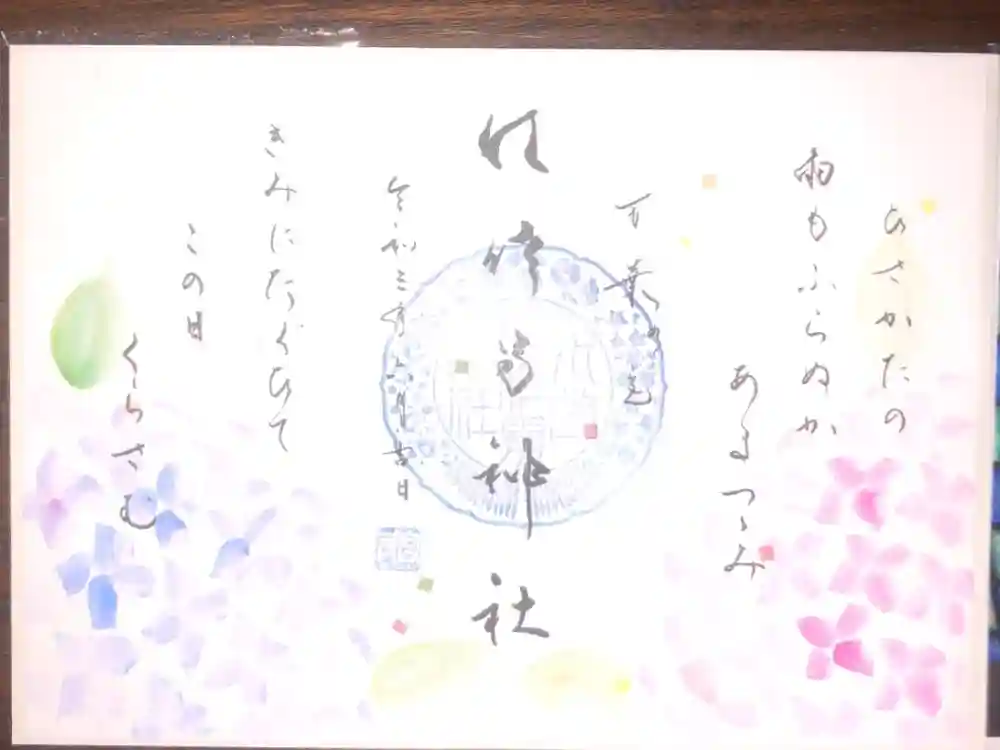 ひさかたの
雨もふらぬか
あまつゝみ
万葉の
神社
令和三年六月吉日
きみにたぐひて
この日
くらさむ